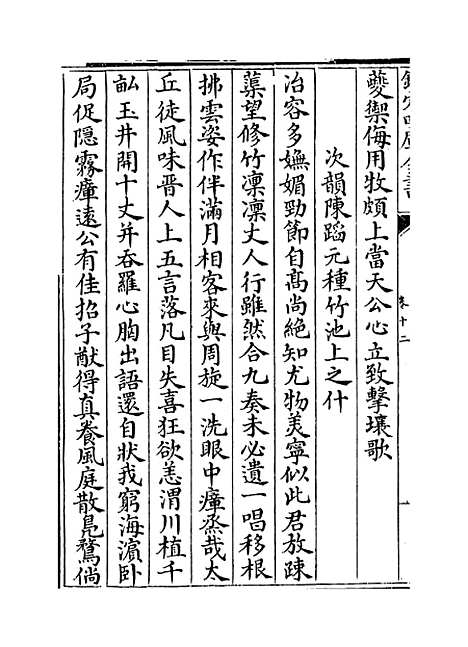 欽定四庫全書
卷十二
夔禦侮用牧頗上當天公心立致擊壤歌
次韻陳蹈元種竹池上之什
冶容多嫵媚勁節自高尚絶知尤物美寧似此君放踈
蕖望修竹凛凛丈人行雖然合九奏未必遺一唱移根
拂雲姿作伴滿月相客來與周旋一洗眼中瘴烝哉太
丘徒風味晋人上五言落凡目失喜狂欲恙渭川植千
畝玉井開十丈并吞羅心胸出語還自狀我窮海濵卧
局促隠霧瘴遠公有佳招子猷得真養風庭散鳬鶩倘